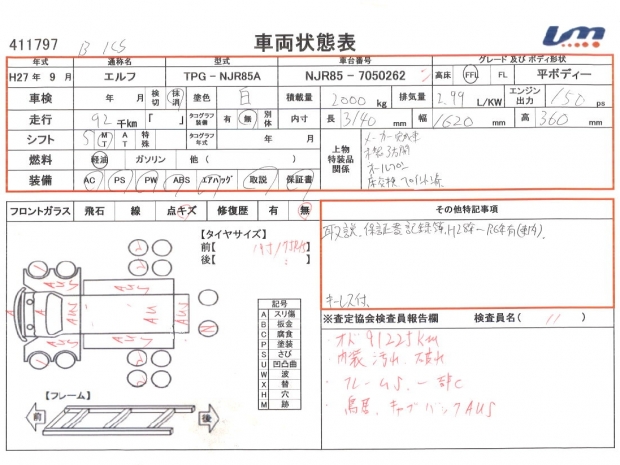 411797 B 車両状態表
年式 通称名 型式 車台番号 グレード及びボディ形状
H27年 9月 エルフ TPG-NJR85A NJR85-7050262 高床 FFL FL 平ボディー
車検 年 月 検切 抹消 塗色 白 積載量 2000 kg 排気量 2.99 L/KW エンジン出力 150 ps
走行 92 千km 「 」 タコグラフ装備 有 無 別体 内寸 長 3140 mm 幅 1620 mm 高 360 mm
シフト 5 MT AT 特殊 タコグラフ年式 年 月 上物特装品関係 メーカー
燃料 軽油 ガソリン 他( ) 木製3方開
装備 AC PS PW ABS エアバッグ 取説 保証書
フロントガラス 飛石 線 点キズ 修復歴 有 無 その他特記事項
【タイヤサイズ】
前[ ]
後[ : ]
取説、保証書、記録簿、H28年〜R6年有
キーレス付
記号
A スリ傷
B 板金
C 腐食
P 塗装
S さび
U 凹凸曲
W 波
X 替
H 穴
M 跡
※査定協会検査員報告欄 検査員名( 11 )
・オド 91225km
・内装 汚れ、破れ
・フレームS、一部C
・鳥居、キャブバックAUS
A US
AUS
AUS
AUS
N
【フレーム】
前 後